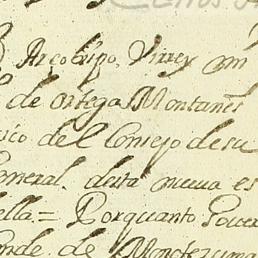 Arcobispo, Virrey
de ortega Montanes
del Consejo de su
General. desta nueva es
ella. = Porquanto
de. de Monteruma